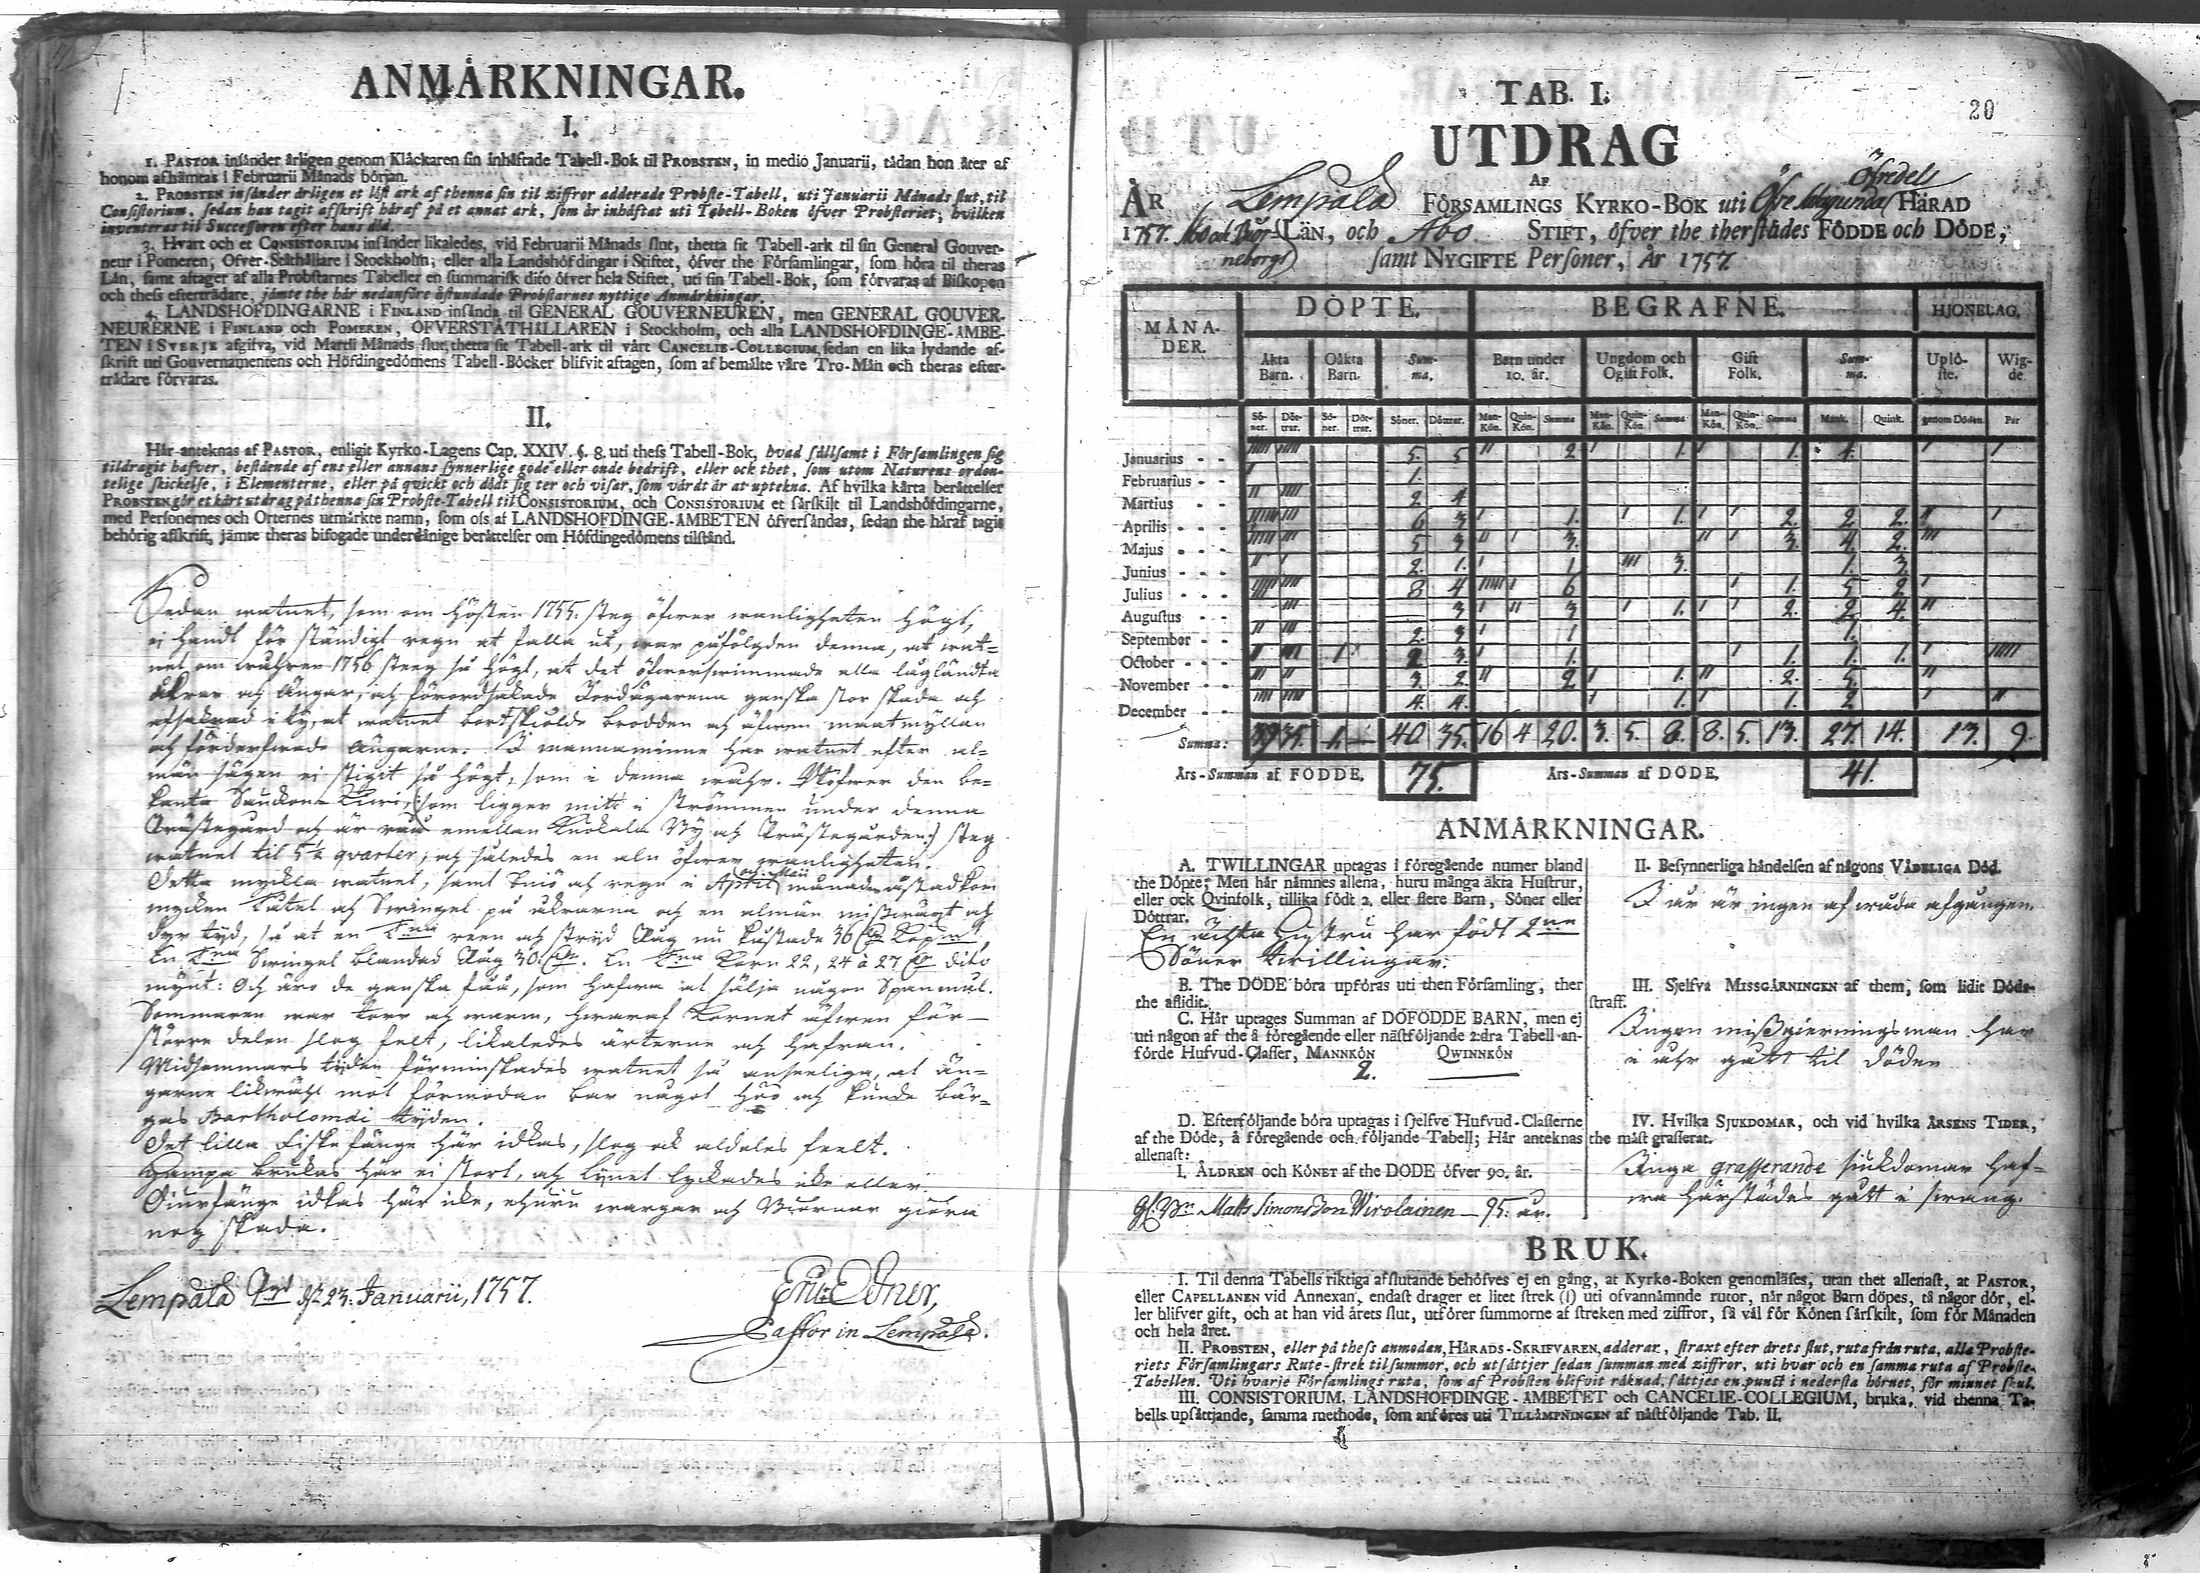 ANMÅRKNINGAR.
I.
1. PASTOR insånder årligen genom Klåckaren sin inhåftade Tabell-Bok til PROBSTEN, in medio Januarii, tådan hon åter af
honom afhåmtas i Februarii Månads början.
2. PROBSTEN insånder årligen et löst ark af thenna sin til ziffror adderade Probste-Tabell, uti Januarii Månads slut, til
Consistorium, sedan han tagit afskrift håraf på et annat ark, som år inhåftat uti Tabell-Boken öfver Probsteriet; hvilken
inventeras til Successoren efter hans död.
3. Hvart och et CONSISTORIUM insånder likaledes, vid Februarii Månads slut, thetta sit Tabell-ark til sin General Gouver-
neur i Pomeren, Ofver-Ståthållare i Stockholm, eller alla Landshöfdingar i Stiftet, öfver the Församlingar, som höra til theras
Lån, samt aftager af alla Probstarnes Tabeller en summarisk dito öfver hela Stiftet, uti sin Tabell-Bok, som förvaras af Biskopen
och thess eftertrådare, jåmte the hår nedanföre åstundade Probstarnes nyttige Anmårkningar.
4. LANDSHOFDINGARNE i FINLAND insånda til GENERAL GOUVERNEUREN, men GENERAL GOUVER-
NEURERNE i FINLAND och POMEREN, OFVERSTÅTHÅLLAREN i Stockholm, och alla LANDSHOFDINGE-ÅMBE-
TEN i SVERJE afgifva, vid Martii Månads slut, thetta sit Tabell-ark til vårt CANCELIE-COLLEGIUM, sedan en lika lydande af-
skrift uti Gouvernamentens och Höfdingedömens Tabell-Böcker blifvit aftagen, som af bemålte våre Tro-Mån och theras efter-
trådare förvaras.
II.
Hår anteknas af PASTOR, enligit Kyrko-Lagens Cap. XXIV. §. 8. uti thess Tabell-Bok, hvad sållsamt i Församlingen sig
tildragit hafver, bestående af ens eller annans synnerlige gode eller onde bedrift, eller ock thet, som utom Naturens orden-
telige skickelse, i Elementerne, eller på qvickt och dödt sig ter och visar, som vårdt år at uptekna. Af hvilka kårta berättelser
PROBSTEN gör et kårt utdrag på thenna sin Probste-Tabell til CONSISTORIUM, och CONSISTORIUM et sårskilt til Landshöfdingarne,
med Personernes och Orternes utmårkte namn, som oss af LANDSHOFDINGE-ÅMBETEN öfversåndas, sedan the håraf tagit
behörig afskrift, jåmte theras bifogade underdånige beråttelser om Höfdingedömens tilstånd.
Sedan watnet, som om Hösten 1755. steg öfwer wanligheten högt,
ei handt för ständigt regn at falla ut, war påfölgden denna, at wat-
net om wåhren 1756 steeg så högt, at det öfwerswimmade alla lagländta
åkrar och ängar, och förordsakade Jordägarena ganska stor skada och
afsaknad i ty, at watnet bortskiölde brodden och äfwen maatmyllan
och förderfwade ängarne. I mannaminne har watnet efter al-
män sägen ei stigit så högt, som i denna wåhr. Utöfwer den be-
kanta Kiwi, som ligger mitt i strömmen under denna
Prästegård och är emellan Kuokala By och Prästegården:) steg
watnet til 5½ qvarter, och således en aln öfwer wanligheten.
Detta myckla watnet, samt snö och regn i April och Maii månader åstadkom
mycken och Swingel på åkrarna och en almän mißwäxt och
dyr tyd, så at en T:na reen och stryd Råg nu kåstade 36
En T:na Swingel blandad Råg 30. En T:na Korn 22, 24 à 27 dito
mynt: Och äro de ganska fåå, som hafwa at sälja någon Spanmål.
Sommaren war torr och warm, hwaraf Kornet äfwen för
större delen slog felt, likaledes ärterne och hafran.
Midsommars tyden förminskades watnet så ansenliga, at än-
garne likwähl mot förmodan bar något Höö och kunde bär-
gas Bartholomæi tyden.
Det lilla Fiskefänge här idkas, slog ock aldeles feelt.
Hampa brukas här ei stort, och Lynet lyckades icke eller.
Diurfänge idkas här icke, ehuru wargar och Biörnar giöra
nog skada.
Lempälä Pr:gd d. 23. Januarii, 1757.
Eric Edner,
Pastor in Lempälä.
20
TAB. I.
UTDRAG
AF
ÅR Lempälä FÖRSAMLINGS KYRKO-BOK uti Öfre Satagunda Öfredels HÄRAD
1757. Åbo och Biör- LÄN, och Åbo STIFT, öfver the therstådes FÖDDE och DÖDE,
neborgs samt NYGIFTE Personer, År 1757.
MÅNA-
DER. DÖPTE. BEGRAFNE. HJONELAG.
Åkta Barn. Oåkta Barn. Sum-ma. Barn under 10. år. Ungdom och Ogift Folk. Gift Folk. Sum-ma. Uplö-ste. Wig-de
Sö-ner. Döt-trar. Sö-ner. Döt-trar. Söner. Döttrar. Man-Kön. Quin-Kön. Summa Man-Kön. Quin-Kön. Summa Man-Kön. Quin-Kön. Summa Mank. Quink. genom Döden. Par
Januarius 5. 5 2 1. 1. 4.
Februarius 1.
Martius 2 4
Aprilis 6 3 1. 1. 2. 2 2.
Majus 5 3 3. 3. 4 2.
Junius 2. 1. 1 3. 1. 3
Julius 8 4 6 1. 5 2
Augustus 3 3 1. 2. 2 4.
September 2. 3 1 1.
October 2 3. 1. 1. 1. 1.
November 3. 2. 2 1. 2. 5.
December 4. 4. 1. 1. 2
Summa: 39 35. 1. — 40 35. 16 4 20. 3. 5. 8. 8. 5. 13. 27. 14. 13. 9.
Års-Summan af FÖDDE, 75. Års-Summan af DÖDE, 41.
ANMÅRKNINGAR.
A. TWILLINGAR uptagas i föregående numer bland
the Döpte; Men hår nåmnes allena, huru många åkta Hustrur,
eller ock Qvinfolk, tillika födt 2, eller flere Barn, Söner eller
Döttrar.
En ächta Hustru har födt 2:ne
Söner twillingar.
B. The DÖDE böra upföras uti then Församling, ther
the aflidit.
C. Hår uptages Summan af DÖFÖDDE BARN, men ej
uti någon af the å föregående eller nåstföljande 2:dra Tabell an-
förde Hufvud-Classer, MANNKÖN QWINNKÖN
2. —
D. Efterföljande böra uptagas i sjelfve Hufvud-Classerne
af the Döde, å föregående och följande Tabell; Hår anteknas
allenast:
I. ÅLDREN och KÖNET af the DÖDE öfver 90. år.
Matts Simonsson Wirolainen — 95. år.
II. Besynnerliga håndelsen af någons VÅDELIGA Död.
I år är ingen af wåda afgången.
III. Sjelfva MISSGÅRNINGEN af them, som lidit Döds-
straff.
Ingen mißgierningsman har
i åhr gått til döden
IV. Hvilka SJUKDOMAR, och vid hvilka ÅRSENS TIDER,
the måst grasserat.
Inga grasserande siukdomar haf-
wa härstädes gått i swang.
BRUK.
I. Til denna Tabells riktiga afslutande behöfves ej en gång, at Kyrko-Boken genomlåses, utan thet allenast, at PASTOR,
eller CAPELLANEN vid Annexan, endast drager et litet strek (I) uti ofvannåmnde rutor, når något Barn döpes, tå någor dör, el-
ler blifver gift, och at han vid årets slut, utförer summorne af streken med ziffror, så vål för Könen sårskilt, som för Månaden
och hela året.
II. PROBSTEN, eller på thess anmodan, HÅRADS-SKRIFVAREN, adderar, straxt efter årets slut, ruta från ruta, alla Probste-
riets Församlingars Rute-strek til summor, och utsåttjer sedan summan med ziffror, uti hvar och en samma ruta af Probste-
Tabellen. Uti hvarje Församlings ruta, som af Probsten blifvit råknad, såttjes en punct i nedersta hörnet, för minnet skul.
III. CONSISTORIUM, LANDSHOFDINGE-ÅMBETET och CANCELIE-COLLEGIUM, bruka, vid thenna Ta-
bells upsåttjande, samma methode, som anföres uti TILLÅMPNINGEN af nåstföljande Tab. II.